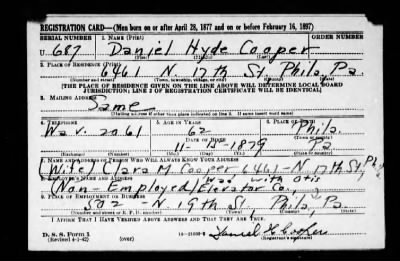 REGISTRATION CARD—(Men born on or after April 28, 1877 and on or before February 16, 1897)
SERIAL NUMBER 1. NAME (Print) ORDER NUMBER
U 687 Daniel Hyde Cooper
(First) (Middle) (Last)
2. PLACE OF RESIDENCE (Print)
6461 N. 17th St. Phila Pa.
(Number and street) (Town, township, village, or city) (County) (State)
[THE PLACE OF RESIDENCE GIVEN ON THE LINE ABOVE WILL DETERMINE LOCAL BOARD
JURISDICTION; LINE 2 OF REGISTRATION CERTIFICATE WILL BE IDENTICAL]
3. MAILING ADDRESS
Same
[Mailing address if other than place indicated on line 2. If same insert word same]
4. TELEPHONE 5. AGE IN YEARS 6. PLACE OF BIRTH
Wav. 2061 62 Phila.
DATE OF BIRTH
11- 1879 Pa
7. NAME AND ADDRESS OF PERSON WHO WILL ALWAYS KNOW YOUR ADDRESS
(Wife) Clara M. Cooper 6461-N. 17th St. Phila
8. EMPLOYER'S NAME AND ADDRESS
Was with Otis
(Non-Employed) Elevator Co.,
9. PLACE OF EMPLOYMENT OR BUSINESS
502 - N. 19th St. Phila, Pa.
(Number and street or R. F. D. number) (Town) (County) (State)
I AFFIRM THAT I HAVE VERIFIED ABOVE ANSWERS AND THAT THEY ARE TRUE.
D. S. S. Form 1
(Revised 4-1-42) (over) Daniel H Cooper
(Registrant's signature)